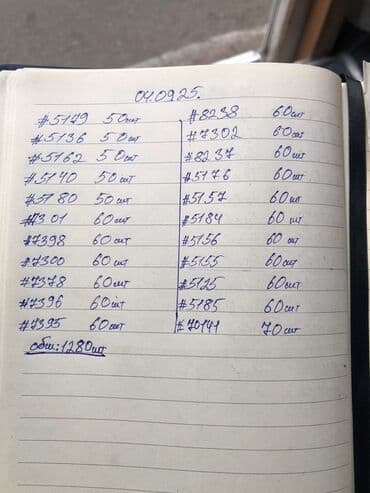 04.09.25.
#5179 50шт
#5136 50шт
#5162 50шт
#5140 50шт
#5180 50шт
#7301 60шт
#7398 60шт
#7300 60шт
#7378 60шт
#7396 60шт
#7395 60шт
общ:1280шт
#8238 60шт
#7302 60шт
#8237 60шт
#5176 60шт
#5157 60шт
#5184 60шт
#5156 60шт
#5155 60шт
#5125 60шт
#5185 60шт
#70141 70шт